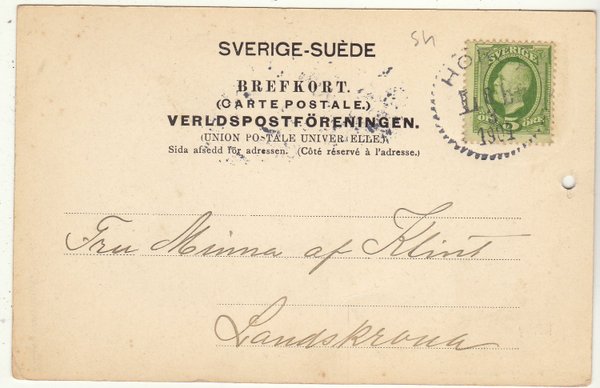 SVERIGE-SUÈDE
BREFKORT.
(CARTE POSTALE.)
VERLDSPOSTFÖRENINGEN.
(UNION POSTALE UNIVERSELLE)
Sida afsedd för adressen. (Côté réservé à l'adresse.)
SVERIGE
ÖRE
Fru Minna af Klint
Landskrona